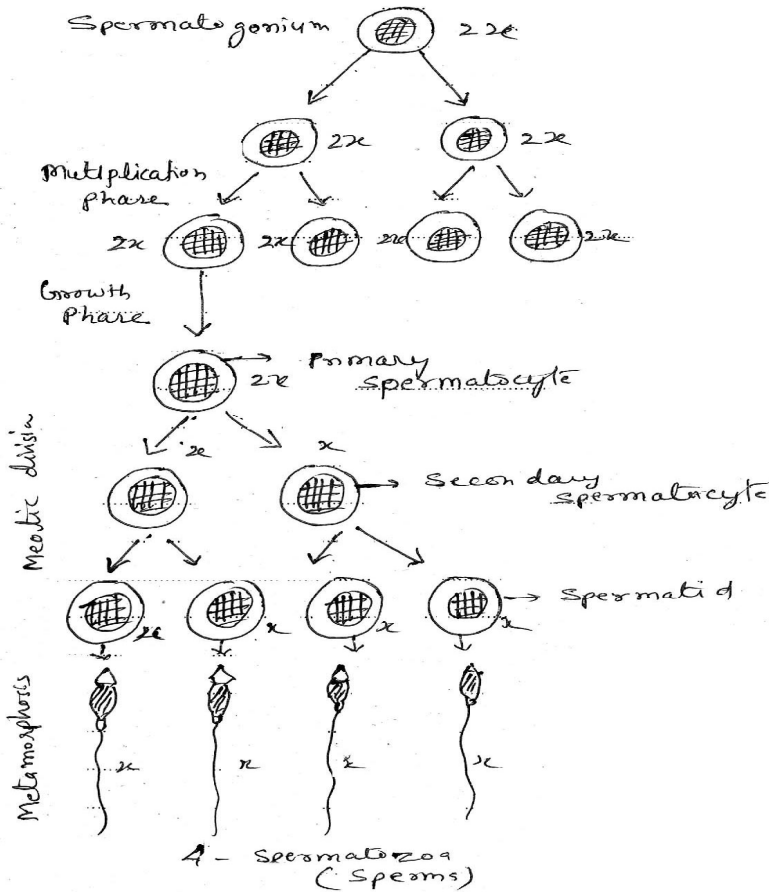 Spermatogonium 2x
2x 2x
Multiplication
phase
2x 2x 2x 2x
Growth
Phase
Primary
2x spermatocyte
x x
Secondary
spermatocyte
Meotic division
Spermatid
x x x x
Metamorphosis
x x x x
4 - Spermatozoa
(Sperms)